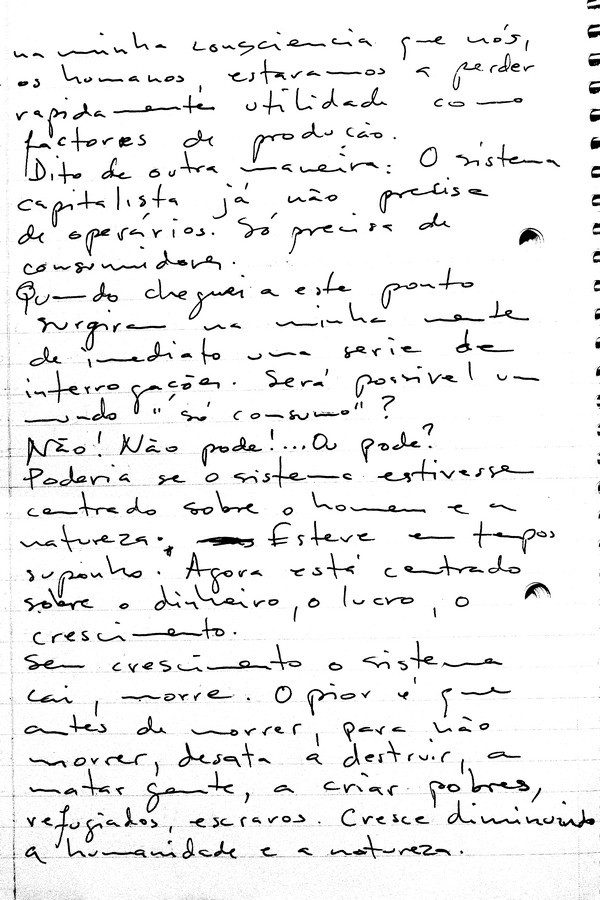 na minha consciencia que nós,
os humanos, estavamos a perder
rapidamente utilidade como
factores de produção.
Dito de outra maneira: O sistema
capitalista já não precisa
de operários. Só precisa de
consumidores.
Quando cheguei a este ponto
surgiram na minha mente
de imediato uma serie de
interrogações. Será possivel um
mundo "só consumo"?
Não! Não pode!...Ou pode?
Poderia se o sistema estivesse
centrado sobre o homem e a
natureza. Esteve em tempos
suponho. Agora está centrado
sobre o dinheiro, o lucro, o
crescimento.
Sem crescimento o sistema
cai, morre. O pior é que
antes de morrer, para não
morrer, desata a destruir, a
matar gente, a criar pobres,
refugiados, escravos. Cresce diminuindo
a humanidade e a natureza.